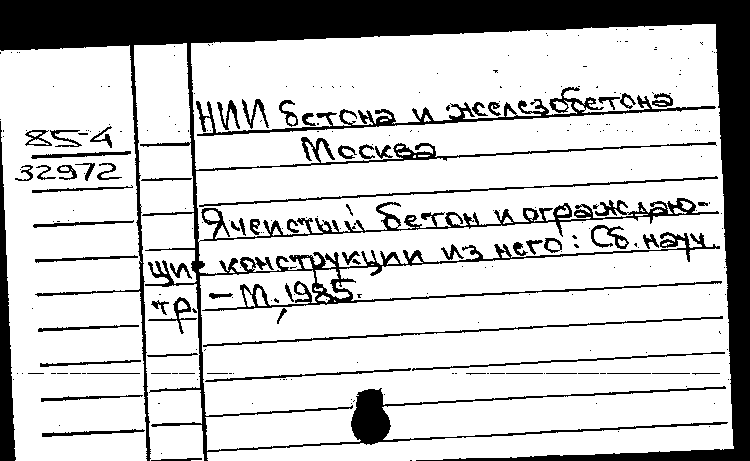 НИИ бетона и железобетона
85-4
Москва.
32972
Ячеистый бетон и ограждаю-
щие конструкции из него: Сб. науч.
тр. – М., 1985.